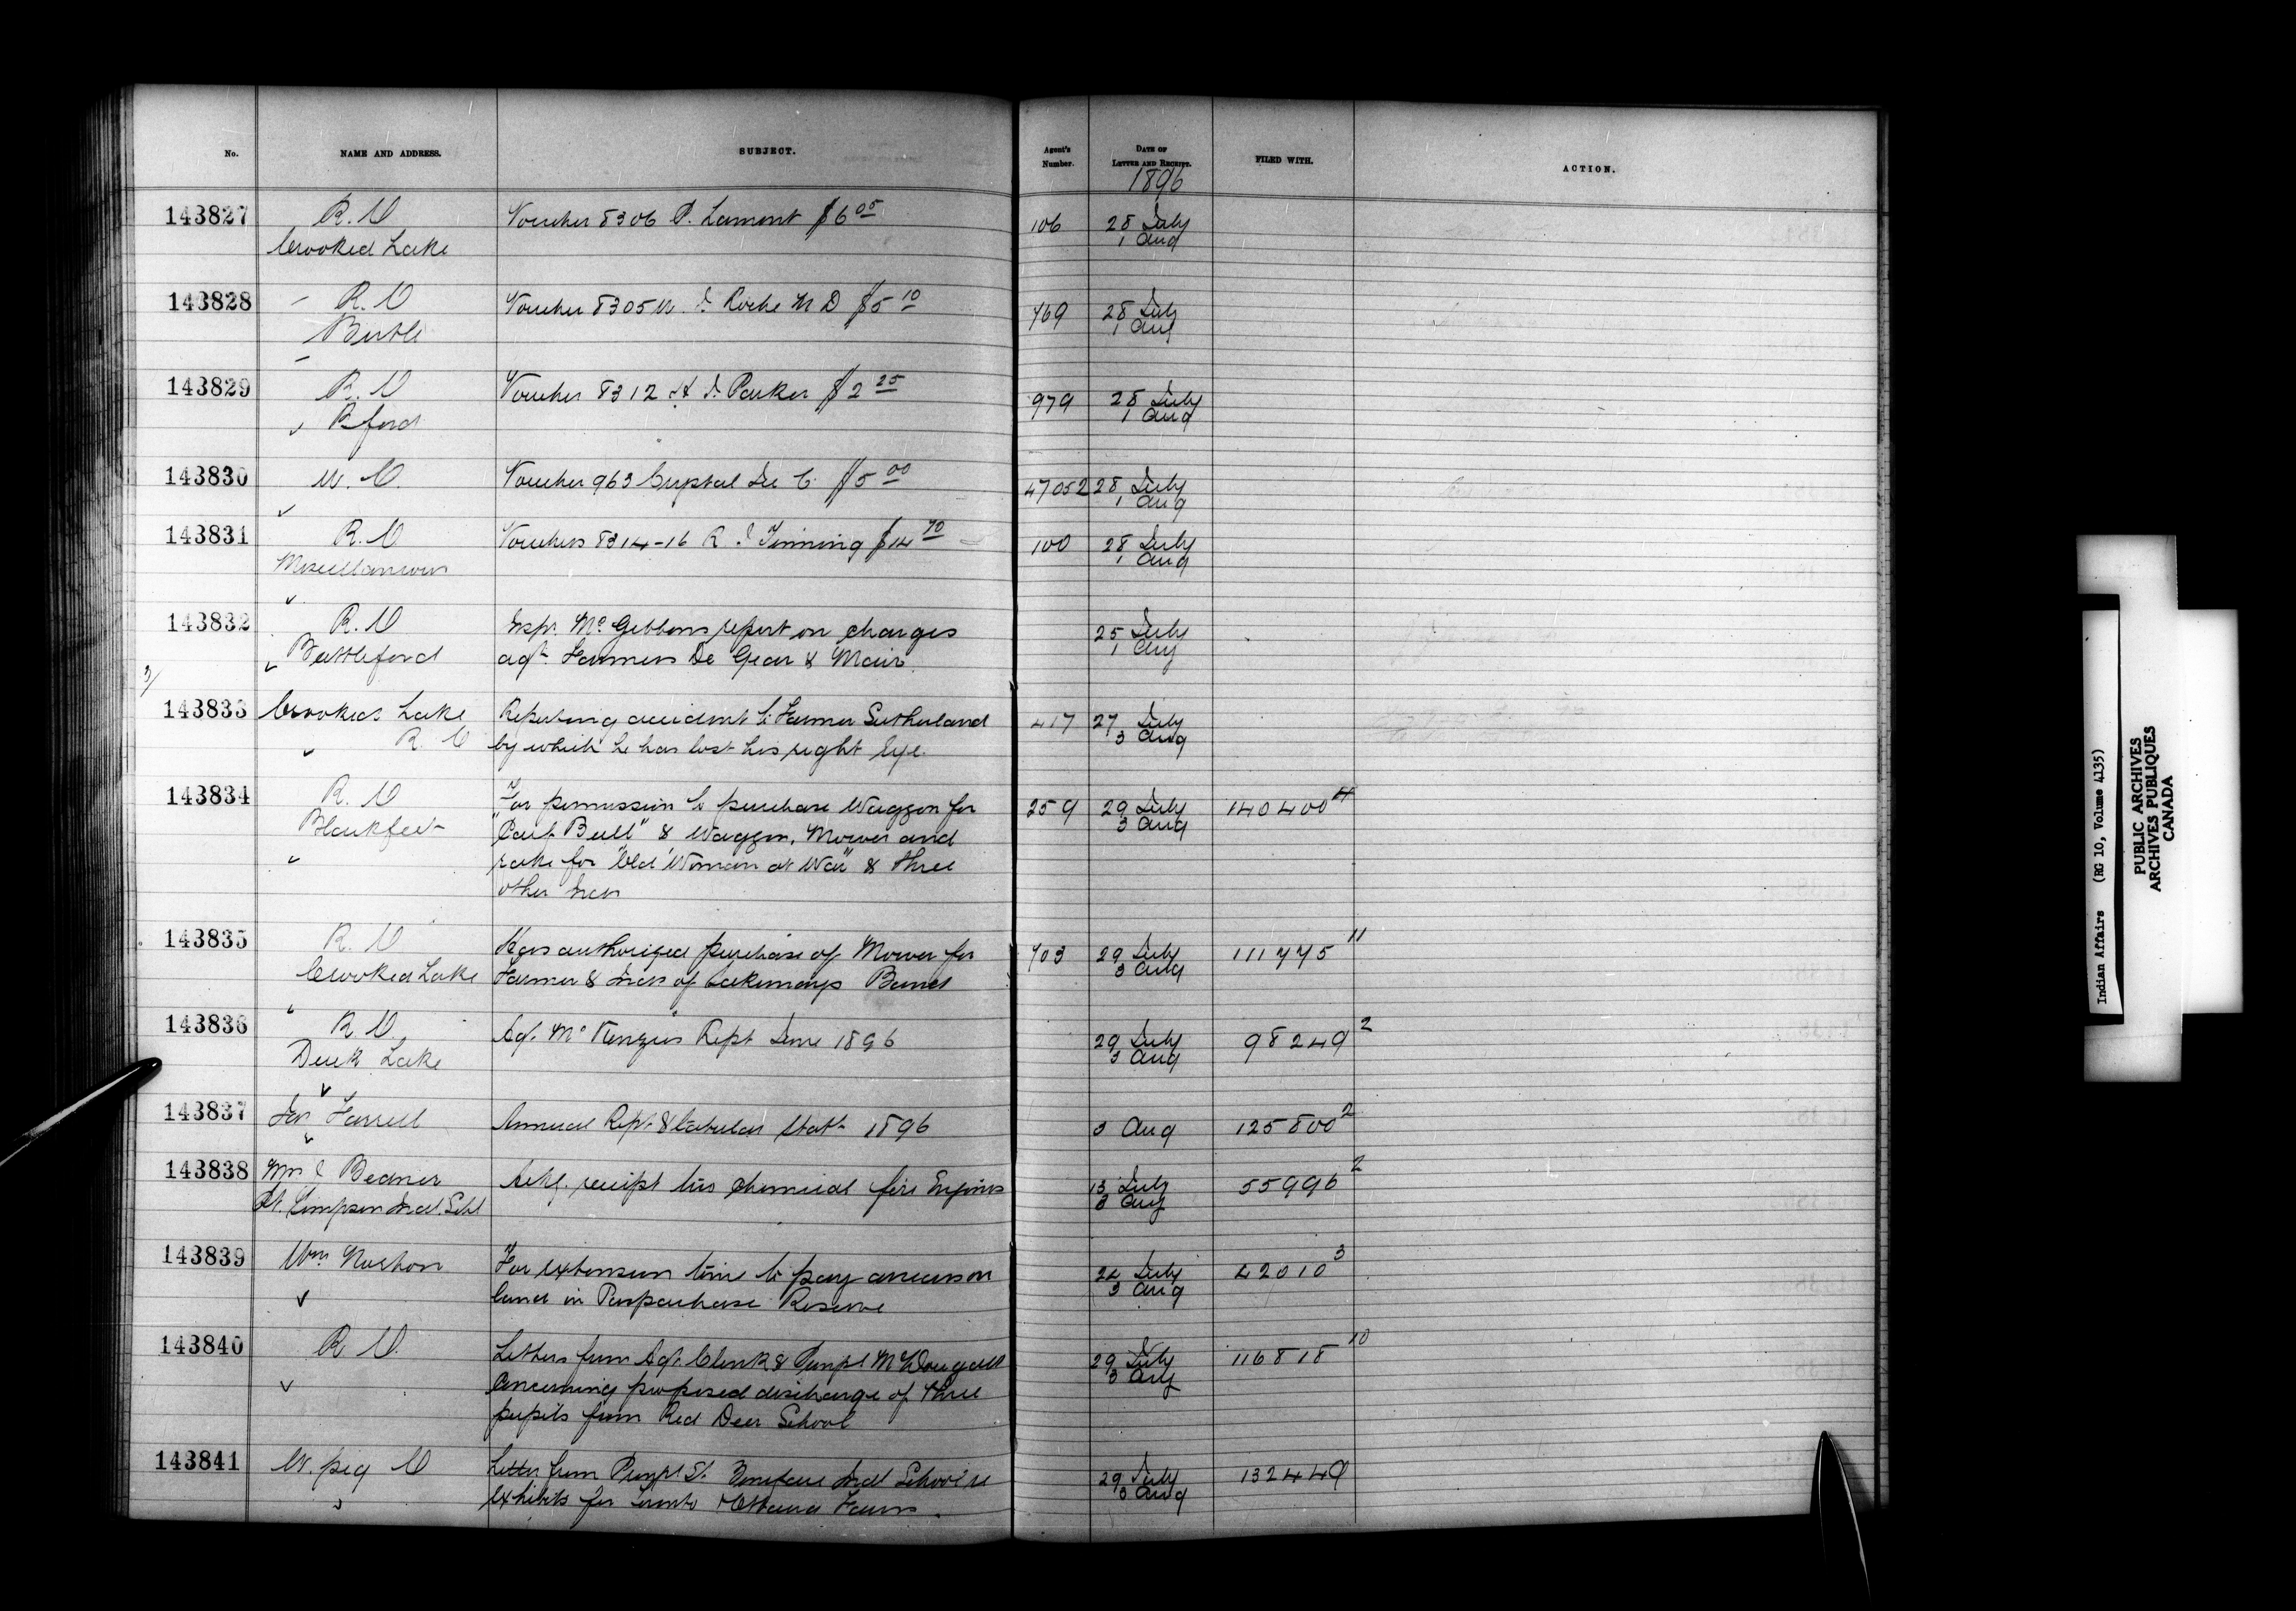 No. NAME AND ADDRESS. SUBJECT. Agent's Number. DATE OF LETTER AND RECEIPT. FILED WITH. ACTION.
1896
143827 R. C Voucher 8306 P. Lamont $6 05 106 28 July
Crooked Lake 1 Aug
143828 R. C Voucher 8305 W. J. Roche M D $5 10 769 28 July
Birtle 1 Aug
143829 R. C Voucher 8312 A. J. Parker $2 25 979 28 July
B.ford 1 Aug
143830 W. C. Voucher 963 $5 00 47052 28 July
1 Aug
143831 R. C Vouchers 8314-16 R. J. Tinning $14 70 100 28 July
Miscellaneous 1 Aug
143832 R. C Insp. McGibbons report on charges 25 July
Battleford agt. Farmers De Gear & Mair. 1 Aug
3/
143833 Crooked Lake Reporting accident to Farmer Sutherland 417 27 July
R. C by which he has lost his right Eye. 3 Aug
143834 R. C For permission to purchase Waggon for 259 29 July 140400 4
Blackfeet "Calf Bull" & Waggon, Mower and 3 Aug
rake for "Old Woman at War" & three
other Inds
143835 R. C Has authorized purchase of Mower for 703 29 July 111775 11
Crooked Lake Farmer & Inds of Cakimays Band 3 Aug
143836 R C Agt. McKenzies Rept June 1896 29 July 98249 2
Duck Lake 3 Aug
143837 Jas Farrell Annual Rept & Tabular Statt 1896 3 Aug 125800 2
143838 Ackg. receipt two chemical fire Engines 13 July 55996 2
Pt. Simpson Indl. Schl 3 Aug
143839 Wm For extension time to pay arrears on 24 July 42010 3
land in Paspachase Reserve 3 Aug
143840 R C. Letters from Agt. Clink & Prinpl McDougall 29 July 116818 10
Concerning proposed discharge of three 3 Aug
pupils from Red Deer School
143841 W. peg C Letter from Prinpl St. Boniface Indl School re 29 July 132449
exhibits for Toronto & Ottawa Fairs. 3 Aug
Indian Affairs (RG 10, Volume 4135)
PUBLIC ARCHIVES
ARCHIVES PUBLIQUES
CANADA